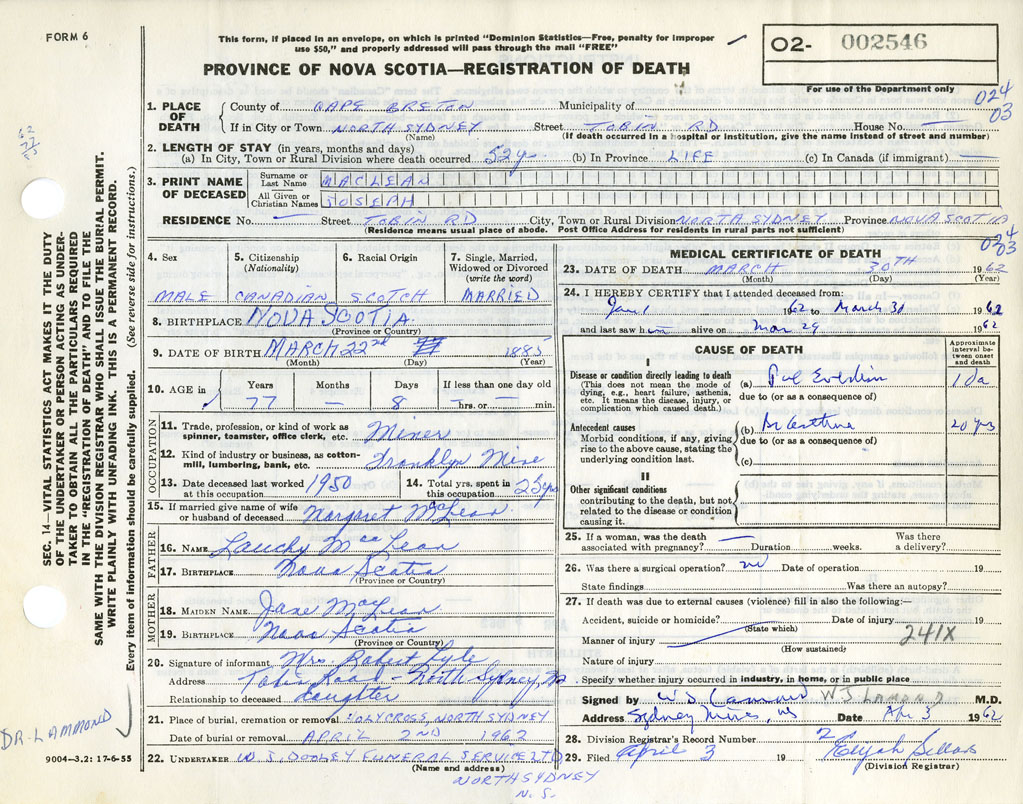 FORM 6
This form, if placed in an envelope, on which is printed "Dominion Statistics—Free, penalty for improper
use $50," and properly addressed will pass through the mail "FREE"
PROVINCE OF NOVA SCOTIA—REGISTRATION OF DEATH
O2- 002546
For use of the Department only
024
03
1. PLACE OF DEATH County of CAPE BRETON Municipality of
If in City or Town NORTH SYDNEY Street TOBIN RD House No. —
(Name) (If death occurred in a hospital or institution, give the name instead of street and number)
2. LENGTH OF STAY (in years, months and days)
(a) In City, Town or Rural Division where death occurred 52y (b) In Province LIFE (c) In Canada (if immigrant) —
3. PRINT NAME OF DECEASED Surname or Last Name MACLEAN
All Given or Christian Names JOSEPH
RESIDENCE No. — Street TOBIN RD City, Town or Rural Division NORTH SYDNEY Province NOVA SCOTIA
(Residence means usual place of abode. Post Office Address for residents in rural parts not sufficient)
024
03
4. Sex MALE
5. Citizenship (Nationality) CANADIAN
6. Racial Origin SCOTCH
7. Single, Married, Widowed or Divorced (write the word) MARRIED
8. BIRTHPLACE NOVA SCOTIA
(Province or Country)
9. DATE OF BIRTH MARCH 22nd 1885
(Month) (Day) (Year)
10. AGE in Years Months Days If less than one day old
77 — 8 hrs. or — min.
OCCUPATION
11. Trade, profession, or kind of work as
spinner, teamster, office clerk, etc. Miner
12. Kind of industry or business, as cotton-
mill, lumbering, bank, etc. Franklyn Mine
13. Date deceased last worked at this occupation 1950
14. Total yrs. spent in this occupation 25 yrs
15. If married give name of wife
or husband of deceased Margaret McLean
FATHER
16. NAME Lauchy MacLean
17. BIRTHPLACE Nova Scotia
(Province or Country)
MOTHER
18. MAIDEN NAME Jane MacLean
19. BIRTHPLACE Nova Scotia
(Province or Country)
20. Signature of informant Mrs. Robert Lyle
Address Tobin Road - North Sydney, NS
Relationship to deceased daughter
21. Place of burial, cremation or removal HOLYCROSS, NORTH SYDNEY
Date of burial or removal APRIL 2ND 1962
22. UNDERTAKER W. J. DOOLEY FUNERAL SERVICE LTD
(Name and address)
NORTH SYDNEY
N. S.
MEDICAL CERTIFICATE OF DEATH
23. DATE OF DEATH MARCH 30TH 1962
(Month) (Day) (Year)
24. I HEREBY CERTIFY that I attended deceased from:
Jan 1 1962 to March 30 1962
and last saw him alive on Mar 29 1962
CAUSE OF DEATH
Approximate interval between onset and death
I
Disease or condition directly leading to death
(This does not mean the mode of
dying, e.g., heart failure, asthenia,
etc. It means the disease, injury, or
complication which caused death.)
(a) Pul Embolism 1 da
due to (or as a consequence of)
Antecedent causes
Morbid conditions, if any, giving
rise to the above cause, stating the
underlying condition last.
(b) Br Asthma 20 yrs
due to (or as a consequence of)
(c)
II
Other significant conditions
contributing to the death, but not
related to the disease or condition
causing it.
25. If a woman, was the death
associated with pregnancy? — Duration weeks. Was there a delivery?
26. Was there a surgical operation? no Date of operation 19
State findings Was there an autopsy?
27. If death was due to external causes (violence) fill in also the following:—
Accident, suicide or homicide? (State which) Date of injury 19
Manner of injury (How sustained) 241X
Nature of injury
Specify whether injury occurred in industry, in home, or in public place
Signed by WJ Lamond W J LAMOND M.D.
Address Sydney Mines, NS Date Apr 3 1962
28. Division Registrar's Record Number 2
29. Filed April 3 19 Elijah Sellars
(Division Registrar)
SEC. 14—VITAL STATISTICS ACT MAKES IT THE DUTY
OF THE UNDERTAKER OR PERSON ACTING AS UNDER-
TAKER TO OBTAIN ALL THE PARTICULARS REQUIRED
IN THE "REGISTRATION OF DEATH" AND TO FILE THE
SAME WITH THE DIVISION REGISTRAR WHO SHALL ISSUE THE BURIAL PERMIT.
WRITE PLAINLY WITH UNFADING INK. THIS IS A PERMANENT RECORD.
Every item of information should be carefully supplied. (See reverse side for instructions.)
62
77
85
DR-LAMMOND
9004—3,2: 17-6-55